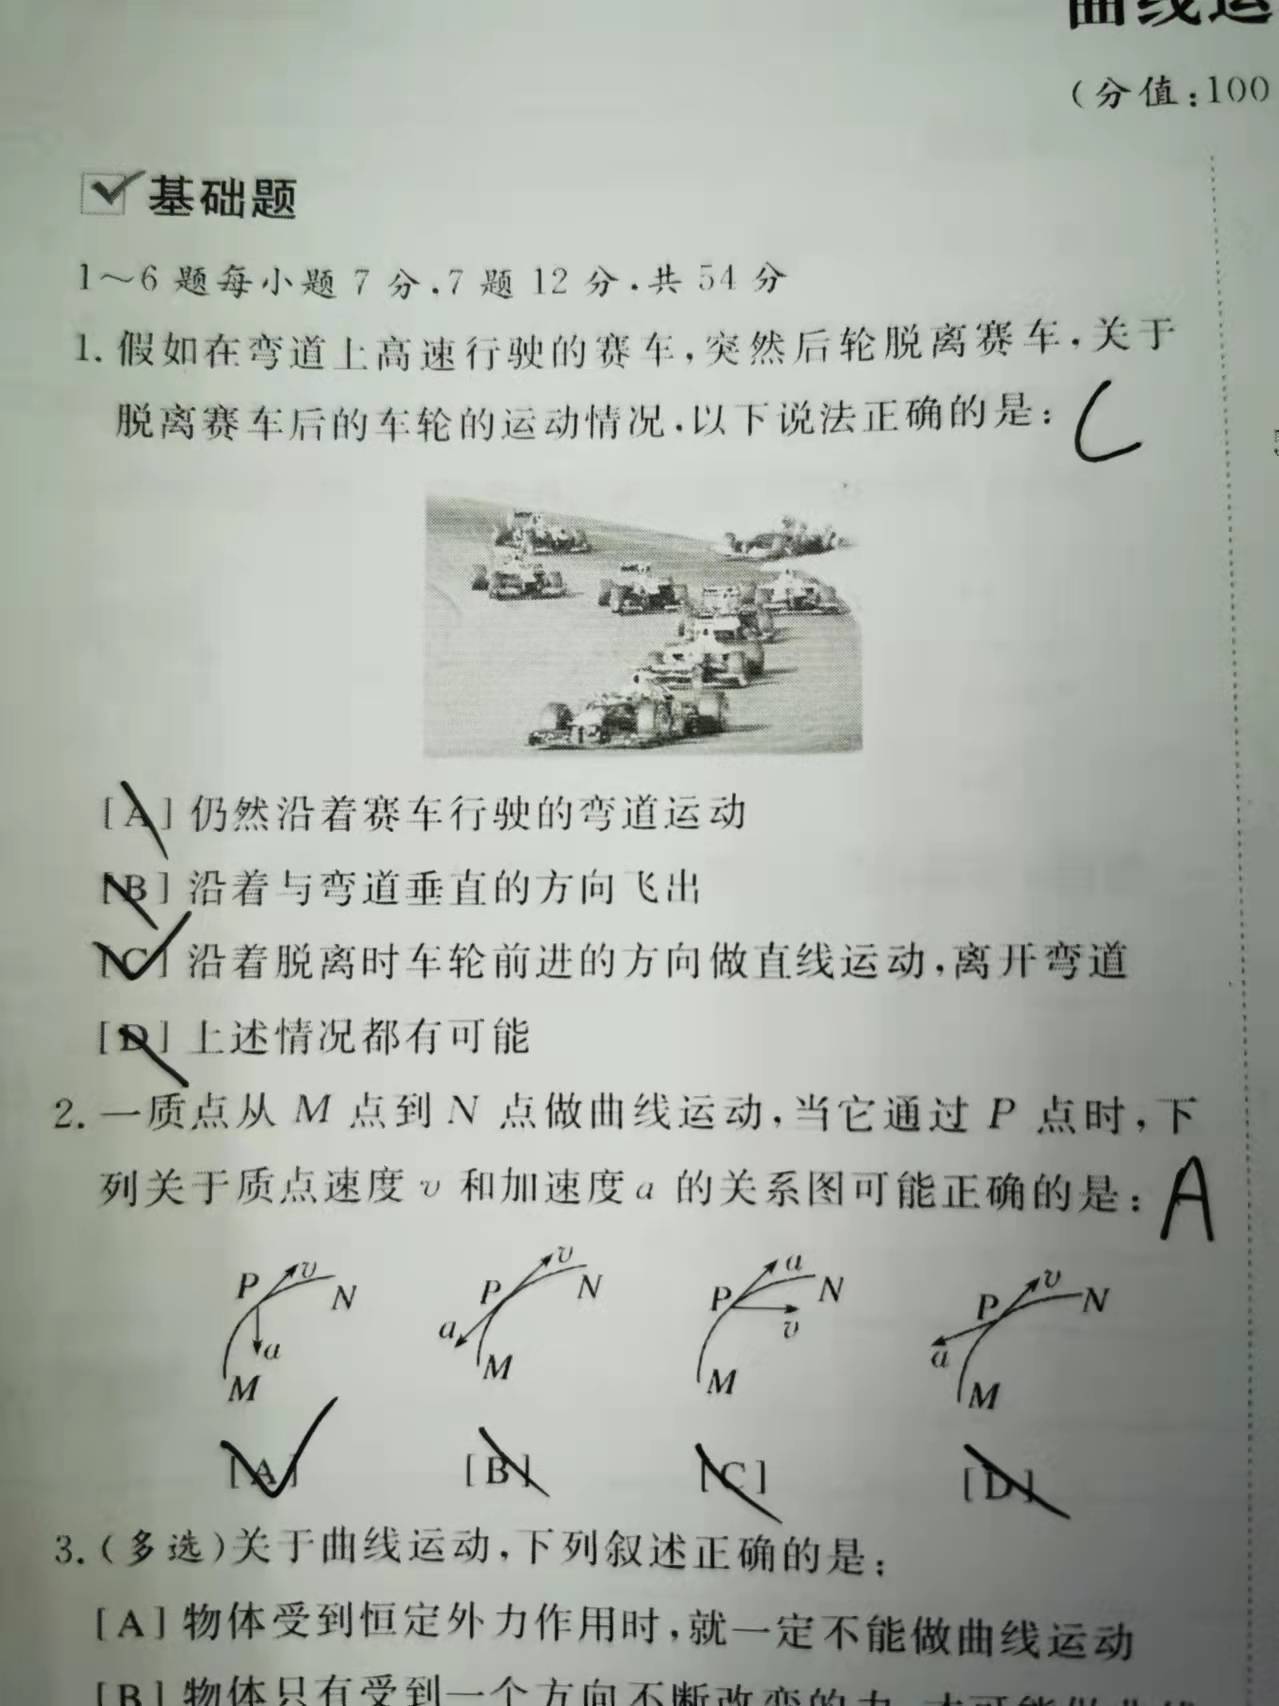 曲线运
(分值:100
基础题
1～6 题每小题 7 分,7 题 12 分,共 54 分
1. 假如在弯道上高速行驶的赛车,突然后轮脱离赛车,关于
脱离赛车后的车轮的运动情况,以下说法正确的是: C
[A] 仍然沿着赛车行驶的弯道运动
[B] 沿着与弯道垂直的方向飞出
[C] 沿着脱离时车轮前进的方向做直线运动,离开弯道
[D] 上述情况都有可能
2. 一质点从 M 点到 N 点做曲线运动,当它通过 P 点时,下
列关于质点速度 v 和加速度 a 的关系图可能正确的是: A
P v N a M
P v N a M
P a N v M
P v N a M
[A] [B] [C] [D]
3. (多选)关于曲线运动,下列叙述正确的是:
[A] 物体受到恒定外力作用时,就一定不能做曲线运动
[B] 物体只有受到一个方向不断改变的力,才可能做曲线